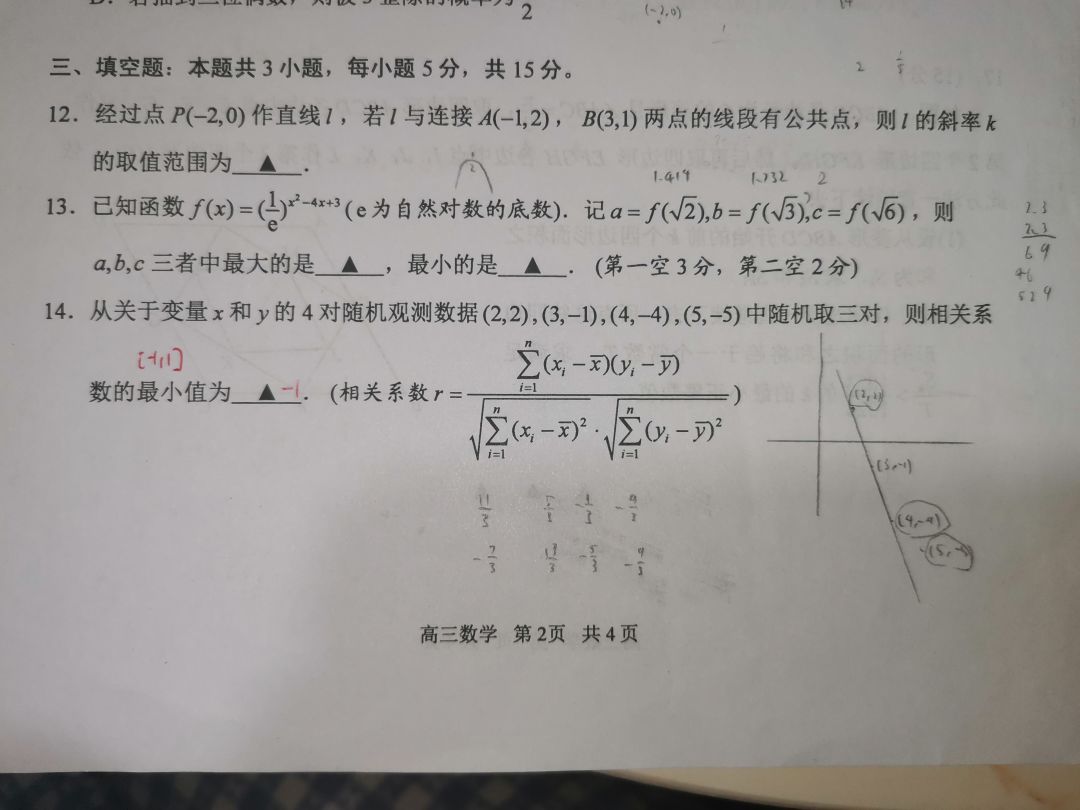 2
(-2,0)
三、填空题：本题共 3 小题，每小题 5 分，共 15 分。
12．经过点 P(−2,0) 作直线 l ，若 l 与连接 A(−1,2)， B(3,1) 两点的线段有公共点，则 l 的斜率 k
的取值范围为 ▲ ．
1.414 1.732 2
13．已知函数 f(x) = (1/e)^{x²−4x+3} ( e 为自然对数的底数)．记 a = f(√2), b = f(√3), c = f(√6)，则
a,b,c 三者中最大的是 ▲ ，最小的是 ▲ ．(第一空 3 分，第二空 2 分)
2.3
2.3
69
46
529
14．从关于变量 x 和 y 的 4 对随机观测数据 (2,2) , (3,−1) , (4,−4) , (5,−5) 中随机取三对，则相关系
[-1,1]
数的最小值为 ▲ -1 ．(相关系数 r = \frac{\sum_{i=1}^{n}(x_i − \bar{x})(y_i − \bar{y})}{\sqrt{\sum_{i=1}^{n}(x_i − \bar{x})^2} · \sqrt{\sum_{i=1}^{n}(y_i − \bar{y})^2}})
(2,2)
(3,-1)
(4,-4)
高三数学 第 2页 共 4 页